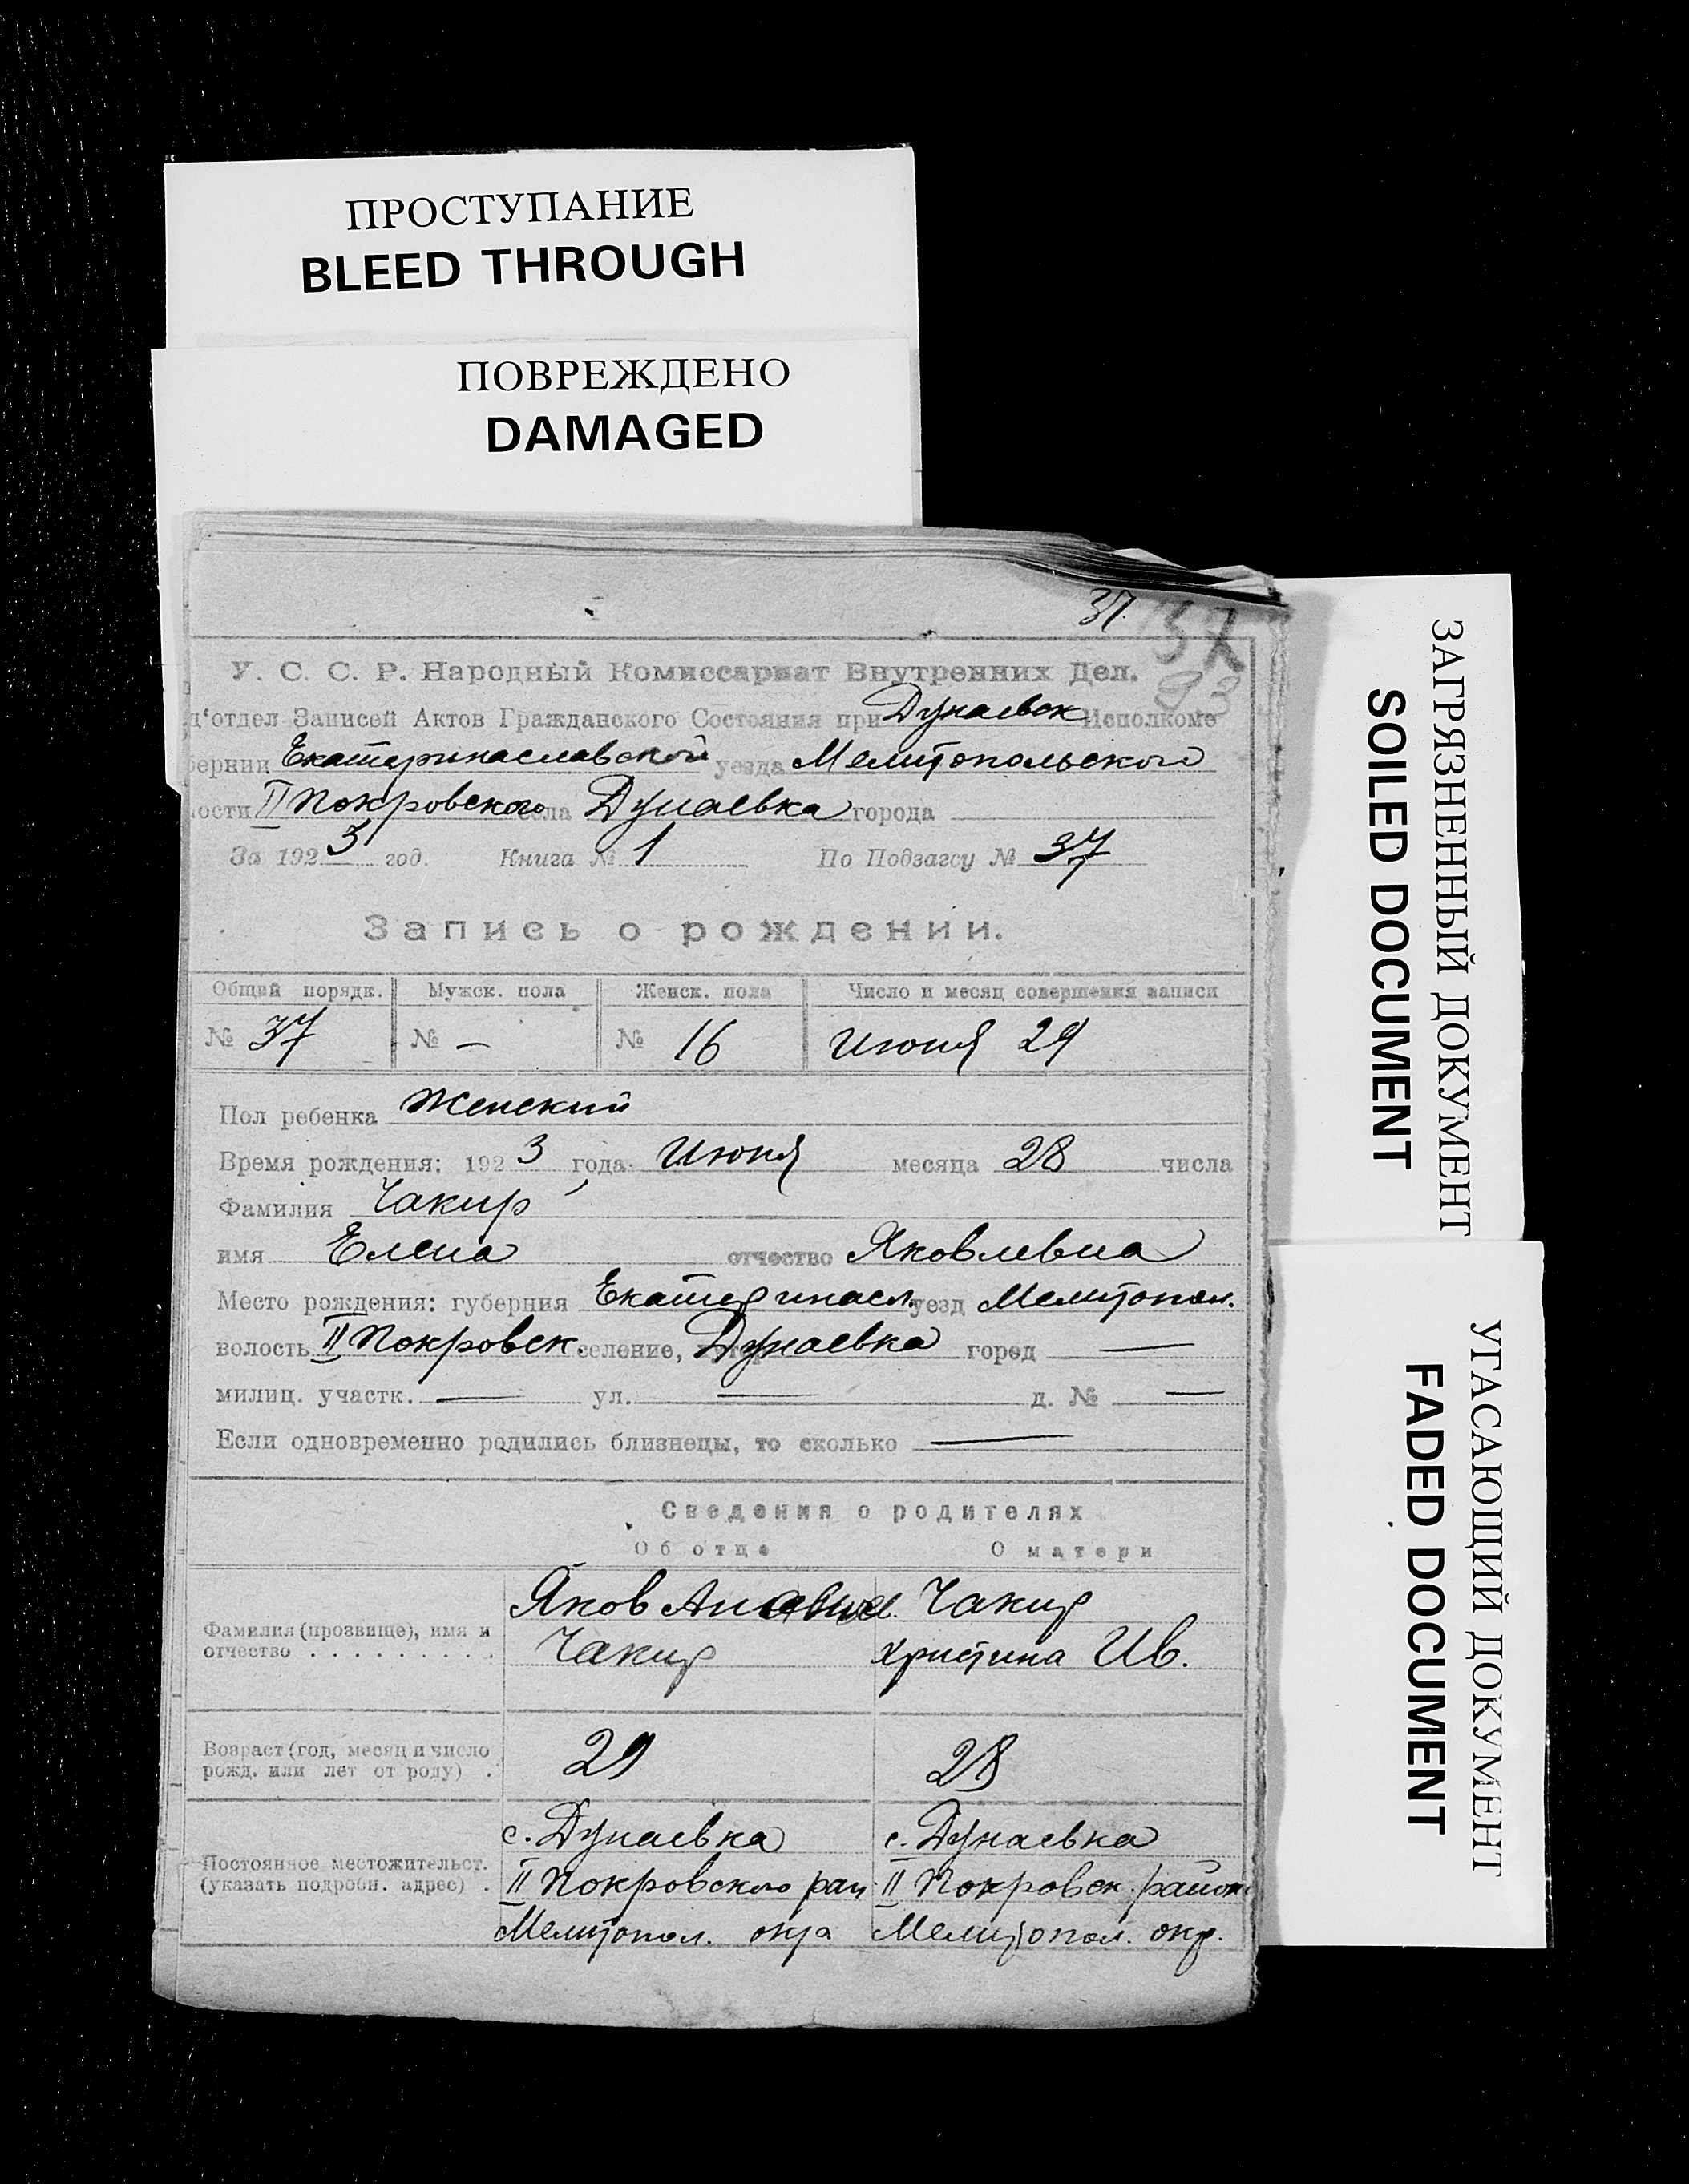 ПРОСТУПАНИЕ
BLEED THROUGH
ПОВРЕЖДЕНО
DAMAGED
ЗАГРЯЗНЕННЫЙ ДОКУМЕНТ
SOILED DOCUMENT
УГАСАЮЩИЙ ДОКУМЕНТ
FADED DOCUMENT
37. 37
93
У. С. С. Р. Народный Комиссариат Внутренних Дел.
д'отдел Записей Актов Гражданского Состояния при Дунаевск Исполкоме
бернии Екатеринаславской уезда Мелитопольского
ости II Покровского села Дунаевка города
За 1923 год. Книга № 1 По Подзагсу № 37
Запись о рождении.
Общий порядк. Мужск. пола Женск. пола Число и месяц совершения записи
№ 37 № — № 16 Июня 29
Пол ребенка Женский
Время рождения: 1923 года Июня месяца 28 числа
Фамилия Чакир
имя Елена отчество Яковлевна
Место рождения: губерния Екатеринасл. уезд Мелитопол.
волость II Покровск. селение, хутор Дунаевка город —
милиц. участк. — ул. — д. № —
Если одновременно родились близнецы, то сколько —
Сведения о родителях
Об отце О матери
Яков Чакир
Фамилия (прозвище), имя и
отчество . . . . . . . . . Чакир Христина Ив.
Возраст (год, месяц и число
рожд. или лет от роду) . 29 28
с. Дунаевка с. Дунаевка
Постоянное местожительст.
(указать подробн. адрес) . II Покровского рай II Покровск. район
Мелитопол. окр. Мелитопол. окр.